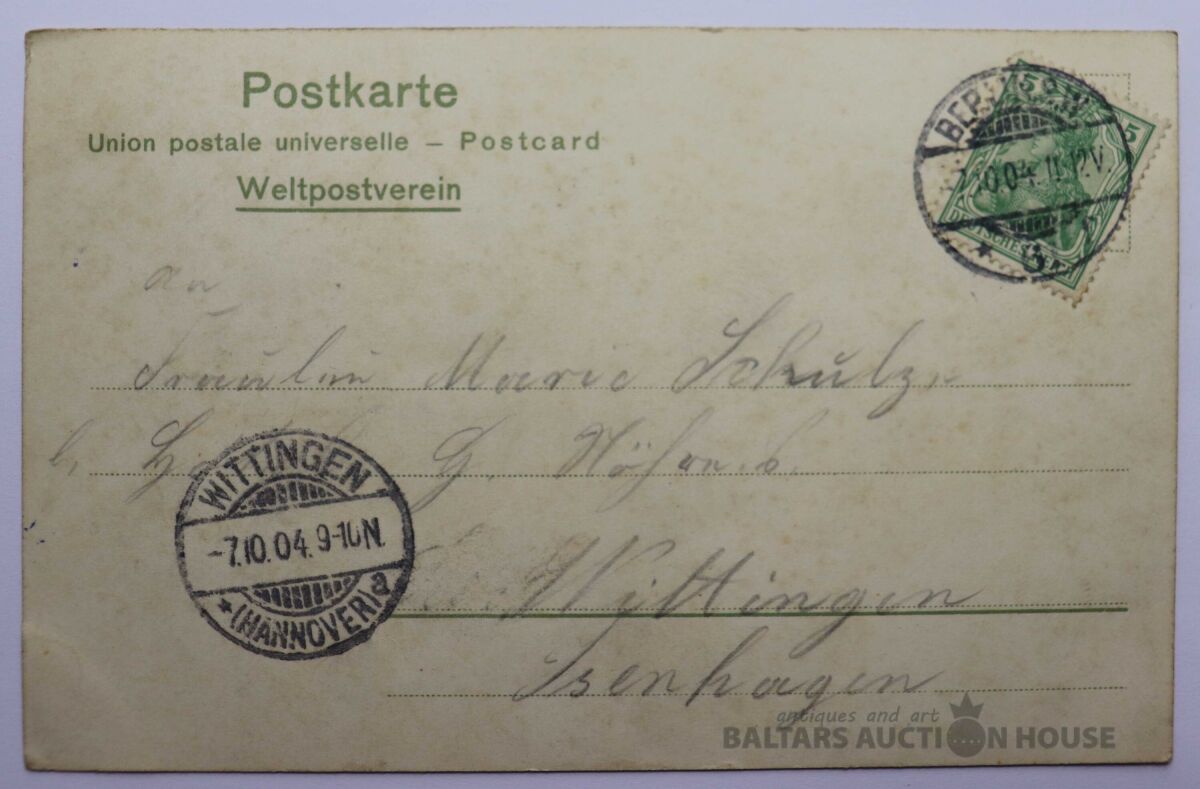 Postkarte
Union postale universelle – Postcard
Weltpostverein
5 5
BERLIN S.W.
10.04. 11-12V.
DEUTSCHES
An
Fräulein Marie Schulz
b. G.
Wittingen
Isenhagen
WITTINGEN
-7.10.04. 9-10N.
* (HANNOVER) a
antiques and art
BALTARS AUCTION HOUSE